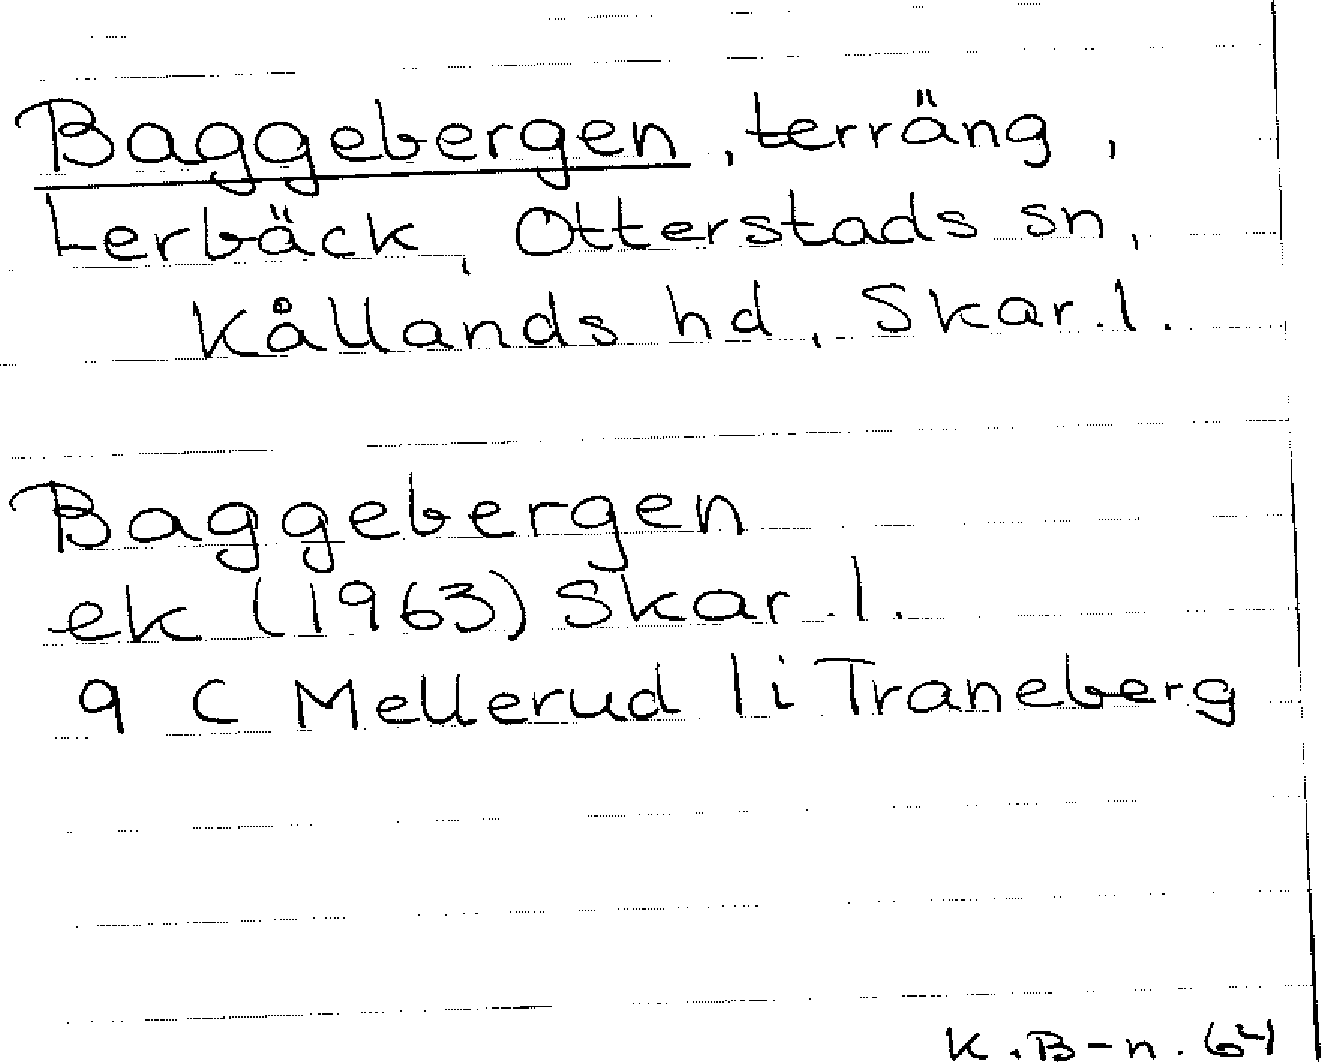 Baggebergen, terräng,
Lerbäck, Otterstads sn,
Kållands hd, Skar. l.
Baggebergen
ek (1963) Skar. l.
9 C Mellerud 1i Traneberg
K. B-n. 64